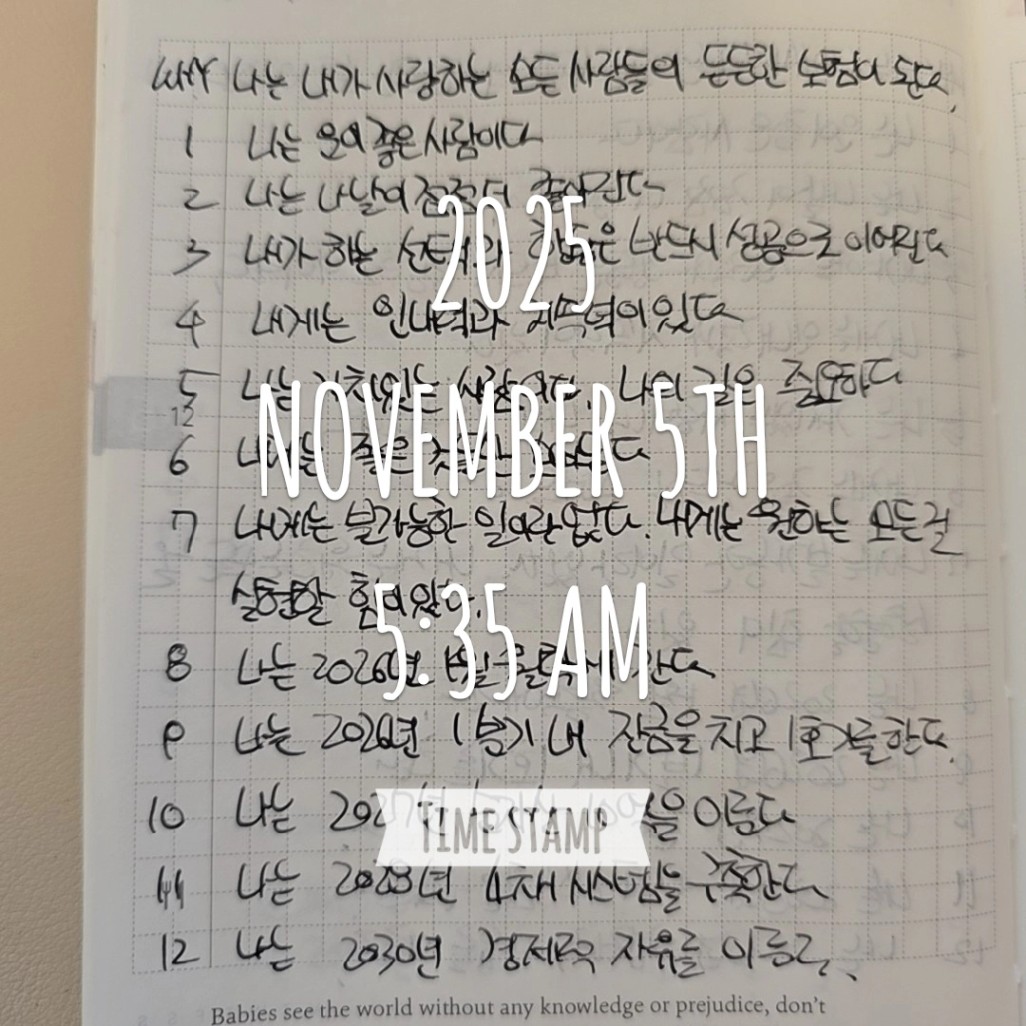 WHY 나는 내가 사랑하는 모든 사람들의 든든한 보험이 된다.
1 나는 운이 좋은 사람이다
2 나는 나날이 점점 더
2025
3 내가 하는 선택과 행동은 반드시 성공으로 이어진다
4 내게는 인내력과 지속력이 있다
5 나는 가치있는 사람이다. 나의 길은 중요하다
12
NOVEMBER 5TH
6 나는 좋은
7 내게는 불가능한 일이란 없다. 내게는 원하는 모든 걸
실현할 힘이 있다.
5:35 AM
8 나는 2026년 간다
9 나는 2026년 1분기 내 잔금을 치고 1호기를 한다.
10 나는 을 이룬다
TIME STAMP
11 나는 2028년 4채 시스템을 구축한다.
12 나는 2030년 경제적 자유를
Babies see the world without any knowledge or prejudice, don't